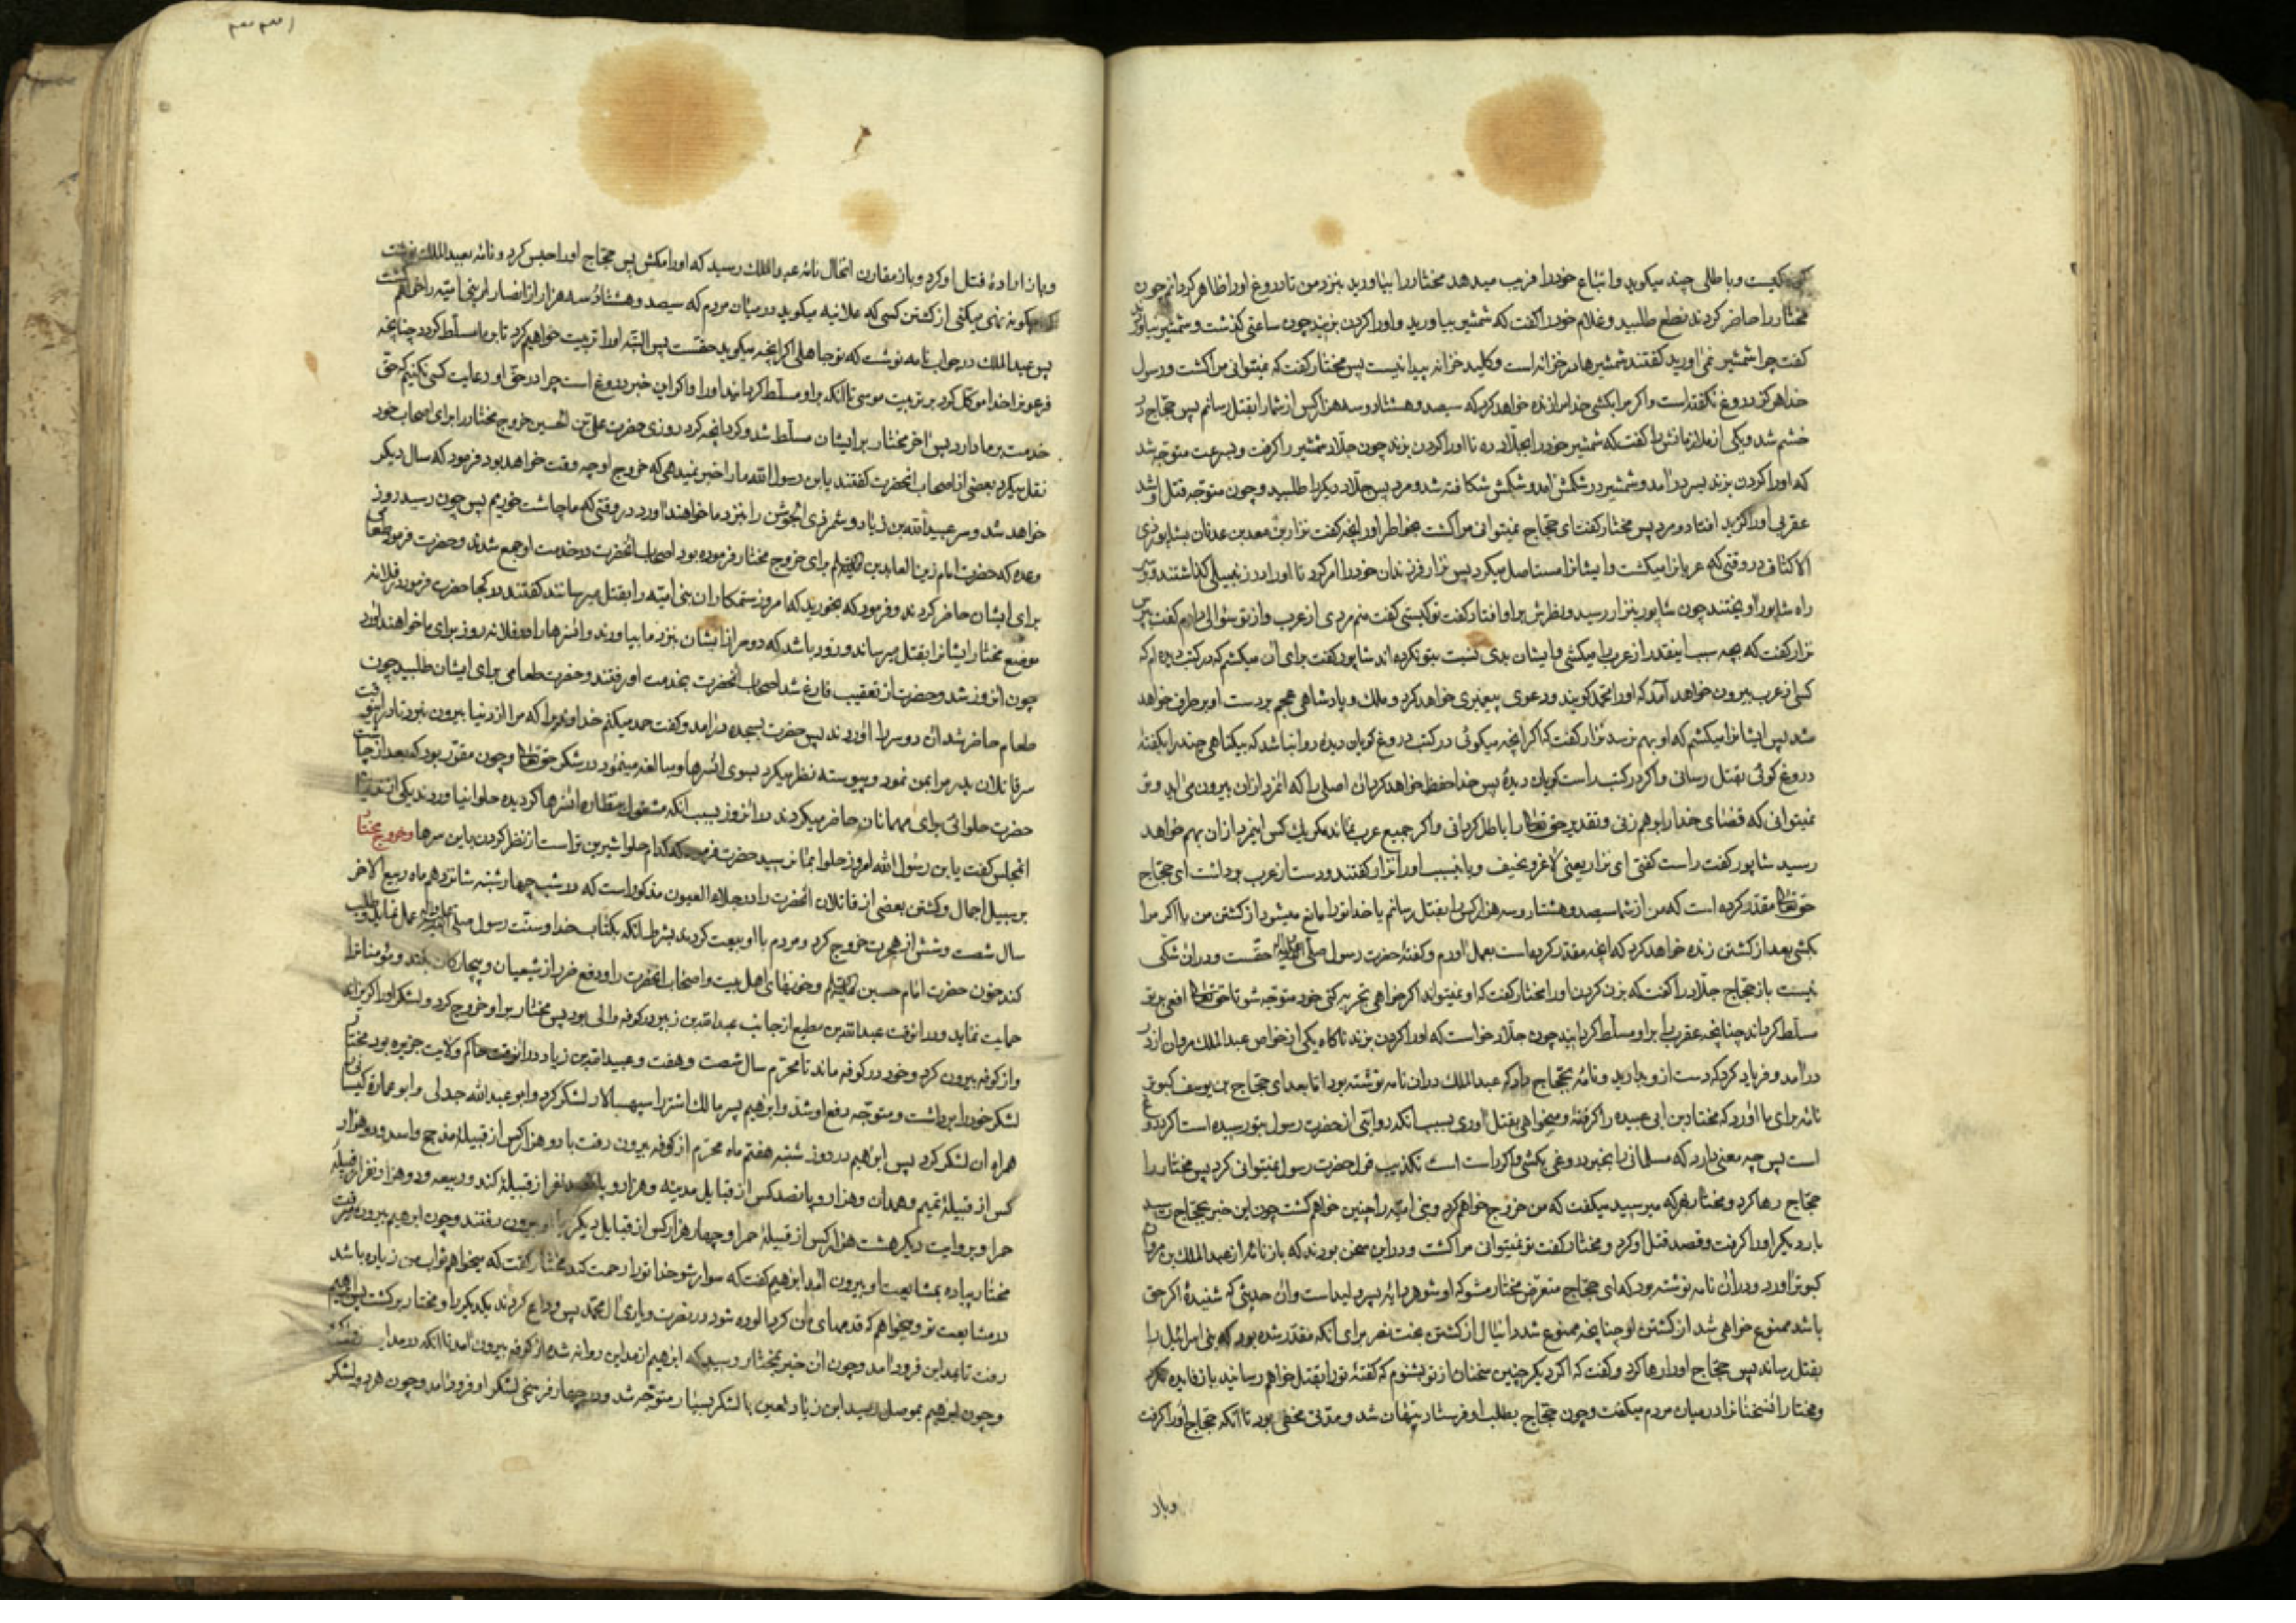 کیست و باطلی چند میکوید و اتباع خود را فریب میدهد مختار را بیاورید بنزد من تا دروغ او را ظاهر کردانم چون
مختار را حاضر کردند نطع طلبید و غلام خود را کفت که شمشیر بیاورید و او را کردن بزنید چون ساعتی کذشت و شمشیر نیاوردند
کفت چرا شمشیر نمی اورید کفتند شمشیرها در خزانه است و کلید خزانه پیدا نیست پس مختار کفت که نمیتوانی مرا کشت و رسول
خدا هرکز دروغ نکفته است و اکر مرا بکشی خدا مرا زنده خواهد کرد که سیصد و هشتاد و سه هزار کس از شما را بقتل رسانم پس حجاج در
خشم شد و یکی از ملازمانش را کفت که شمشیر خود را بجلاد ده تا او را کردن بزند چون جلاد شمشیر را کرفت و بسرعت متوجه شد
که او را کردن بزند بسر در آمد و شمشیر در شکمش آمد و شکمش شکافته شد و مرد پس جلاد دیکر را طلبید و چون متوجه قتل او شد
عقربی او را کزید افتاد و مرد پس مختار کفت ای حجاج نمیتوانی مرا کشت بخاطر اور آنچه کفت نزار بن معد بن عدنان بشاپور ذی
الاکتاف در وقتی که عربانرا میکشت و ایشانرا مستاصل میکرد پس نزار فرزندان خود را امر کرد تا او را در زنبیلی کذاشتند و بر سر
راه شاپور اویختند چون شاپور بنزار رسید و نظرش بر او افتاد کفت تو کیستی کفت منم مردی از عرب و از تو سؤالی دارم کفت بپرس
نزار کفت که بچه سبب اینقدر از عرب را میکشی و ایشان بدی نسبت بتو نکرده اند شاپور کفت برای آن میکشم که در کتب دیده ام که
کسی از عرب بیرون خواهد آمد که او را محمد کویند و دعوی پیغمبری خواهد کرد و ملک و پادشاهی عجم بر دست او برطرف خواهد
شد پس ایشانرا میکشم که او بهم نرسد نزار کفت که اکر آنچه میکوئی در کتب دروغ کویان دیده روا نباشد که بیکناهی چند را بکفتهٔ
دروغ کوئی بقتل رسانی و اکر در کتب راست کویان دیدهٔ پس خدا حفظ خواهد کرد آن اصلی را که آنمرد از آن بیرون می آید و تو
نمیتوانی که قضای خدا را برهم زنی و تقدیر حق تعالی را باطل کردانی و اکر جمیع عرب نماند مکر یک کس آنمرد از آن بهم خواهد
رسید شاپور کفت راست کفتی ای نزار یعنی لاغر و نحیف و باینسبب او را نزار کفتند و دست از عرب برداشت ای حجاج
حق تعالی مقدر کرده است که من از شما سیصد و هشتاد و سه هزار کس را بقتل رسانم یا خدا ترا مانع میشود از کشتن من یا اکر مرا
بکشی بعد از کشتن زنده خواهد کرد که آنچه مقدر کرده است بعمل آورم و کفتهٔ حضرت رسول صلی الله علیه و آله حقست و در آن شکی
نیست باز حجاج جلاد را کفت که بزن کردن او را مختار کفت که او نمیتواند اکر خواهی تجربه کنی خود متوجه شو تا حق تعالی افعی بر تو
مسلط کرداند چنانچه عقرب را بر او مسلط کردانید چون جلاد خواست که او را کردن بزند ناکاه یکی از خواص عبد الملک مروان از در
در آمد و فریاد کرد که دست از او بدارید و نامهٔ بحجاج داد که عبد الملک در آن نامه نوشته بود اما بعد ای حجاج بن یوسف کبوتر
نامه برای ما آورد که مختار بن ابی عبیده را کرفتهٔ و میخواهی بقتل آوری بسبب آنکه روایتی از حضرت رسول بتو رسیده است اکر دروغ
است پس چه معنی دارد که مسلمانی را بخبر دروغی بکشی و اکر راست است تکذیب قول حضرت رسول نمیتوانی کرد پس مختار را
حجاج رها کرد و مختار بهرکه میرسید میکفت که من خروج خواهم کرد و بنی امیه را چنین خواهم کشت چون این خبر بحجاج رسید
بار دیکر او را کرفت و قصد قتل او کرد و مختار کفت تو نمیتوانی مرا کشت و در این سخن بودند که باز نامه از عبد الملک بن مروان
کبوتر آورد و در آن نامه نوشته بود که ای حجاج متعرض مختار مشو که او شوهر دایهٔ پسرم ولید است و آن حدیثی که شنیدهٔ اکر حق
باشد ممنوع خواهی شد از کشتن او چنانچه ممنوع شد دانیال از کشتن بخت نصر برای آنکه مقدر شده بود که بنی اسرائیل را
بقتل رساند پس حجاج او را رها کرد و کفت که اکر دیکر چنین سخنان از تو بشنوم که کفتهٔ ترا بقتل خواهم رسانید باز فایده نکرد
و مختار آن سخنانرا در میان مردم میکفت و چون حجاج بطلب او فرستاد پنهان شد و مدتی مخفی بود تا آنکه حجاج او را کرفت
و باز
و باز ارادهٔ قتل او کرد و باز مقارن آنحال نامهٔ عبد الملک رسید که او را مکش پس حجاج او را حبس کرد و نامه بعبد الملک نوشت
که چکونه نهی میکنی از کشتن کسی که علانیه میکوید در میان مردم که سیصد و هشتاد و سه هزار از انصار بنی امیه را خواهم کشت
پس عبد الملک در جواب نامه نوشت که تو جاهلی اکر آنچه میکوید حقست پس البته او را تربیت خواهیم کرد تا بر ما مسلط کردد چنانچه
فرعون را خدا موکل کرد بر تربیت موسی تا آنکه بر او مسلط کردانید او را و اکر این خبر دروغ است چرا در حق او رعایت کسی نکنیم که حق
خدمت بر ما دارد پس آخر مختار بر ایشان مسلط شد و کرد آنچه کرد روزی حضرت علی بن الحسین خروج مختار را برای اصحاب خود
نقل میکرد بعضی از اصحاب آنحضرت کفتند یا بن رسول الله ما را خبر نمیدهی که خروج او چه وقت خواهد بود فرمود که سال دیکر
خواهد شد و سر عبید الله بن زیاد و شمر ذی الجوشن را بنزد ما خواهند آورد در وقتی که ما چاشت خوریم پس چون رسید روز
وعده که حضرت امام زین العابدین علیه السلام برای خروج مختار فرموده بود اصحاب آنحضرت در خدمت او جمع شدند و حضرت فرمود طعامی
برای ایشان حاضر کردند و فرمود که بخورید که امروز ستمکاران بنی امیه را بقتل میرسانند کفتند در کجا حضرت فرمود در فلانه
موضع مختار ایشانرا بقتل میرساند و زود باشد که دو سر از ایشان بنزد ما بیاورند و آنسرها را در فلانه روز برای ما خواهند آورد
چون آنروز شد و حضرت از تعقیب فارغ شد اصحاب آنحضرت بخدمت او رفتند و حضرت طعامی برای ایشان طلبید چون
طعام حاضر شد آن دو سر را آوردند پس حضرت بسجده در آمد و کفت حمد میکنم خداوندیرا که مرا از دنیا بیرون نبرد تا در اینوقت
سر قاتلان پدر مرا بمن نمود و پیوسته نظر میکرد بسوی آنسرها و مبالغه مینمود در شکر حق تعالی و چون مقرر بود که بعد از چاشت
حضرت حلوائی برای مهمانان حاضر میکردند در آنروز بسبب آنکه مشغول نظاره آنسرها کردیده حلوا نیاوردند یکی از ندیمان
آنمجلس کفت یا بن رسول الله امروز حلوا بما نرسید حضرت فرمود که کدام حلوا شیرین تر است از نظر کردن باین سرها و خروج مختار
بر سبیل اجمال و کشتن بعضی از قاتلان آنحضرت را در جلاء العیون مذکور است که در شب چهارشنبه شانزدهم ماه ربیع الآخر
سال شصت و شش از هجرت خروج کرد و مردم با او بیعت کردند بشرط آنکه بکتاب خدا و سنت رسول صلی الله علیه و آله عمل نماید و طلب
کند خون حضرت امام حسین علیه السلام و خونهای اهل بیت و اصحاب آنحضرت را و دفع ضرر از شیعیان و بیچارکان بکند و مؤمنانرا
حمایت نماید و در آنوقت عبد الله بن مطیع از جانب عبد الله بن زبیر در کوفه والی بود پس مختار بر او خروج کرد و لشکر او را کریزاند
و از کوفه بیرون کرد و خود در کوفه ماند تا محرم سال شصت و هفت و عبید الله بن زیاد در آنوقت حاکم ولایت جزیره بود مختار
لشکر خود را برداشت و متوجه دفع او شد و ابرهیم پسر مالک اشتر را سپهسالار لشکر کرد و ابو عبد الله جدلی و ابو عمارهٔ کیسان را
همراه آن لشکر کرد پس ابرهیم در روز شنبه هفتم ماه محرم از کوفه بیرون رفت با دو هزار کس از قبیلهٔ مذحج و اسد و دو هزار
کس از قبیلهٔ تمیم و همدان و هزار و پانصد کس از قبایل مدینه و هزار و پانصد نفر از قبیلهٔ کنده و ربیعه و دو هزار نفر از قبیلهٔ
حمرا و بروایت دیکر هشت هزار کس از قبیلهٔ حمرا و چهار هزار کس از قبایل دیکر با او بیرون رفتند و چون ابرهیم بیرون میرفت
مختار پیاده بمشایعت او بیرون آمد ابرهیم کفت که سوار شو خدا ترا رحمت کند مختار کفت که میخواهم ثواب من زیاده باشد
در مشایعت تو و میخواهم که قدمهای من کرد آلوده شود در نصرت و یاری آل محمد پس وداع کردند یکدیکر را و مختار برکشت پس ابرهیم
رفت تا بمداین فرود آمد و چون آن خبر بمختار رسید که ابرهیم از مداین روانه شده از کوفه بیرون آمد تا آنکه در مداین
و چون ابرهیم بموصل رسید ابن زیاد لعین با لشکر بسیار متوجه شد و در چهار فرسخی لشکر او فرود آمد و چون هر دو لشکر